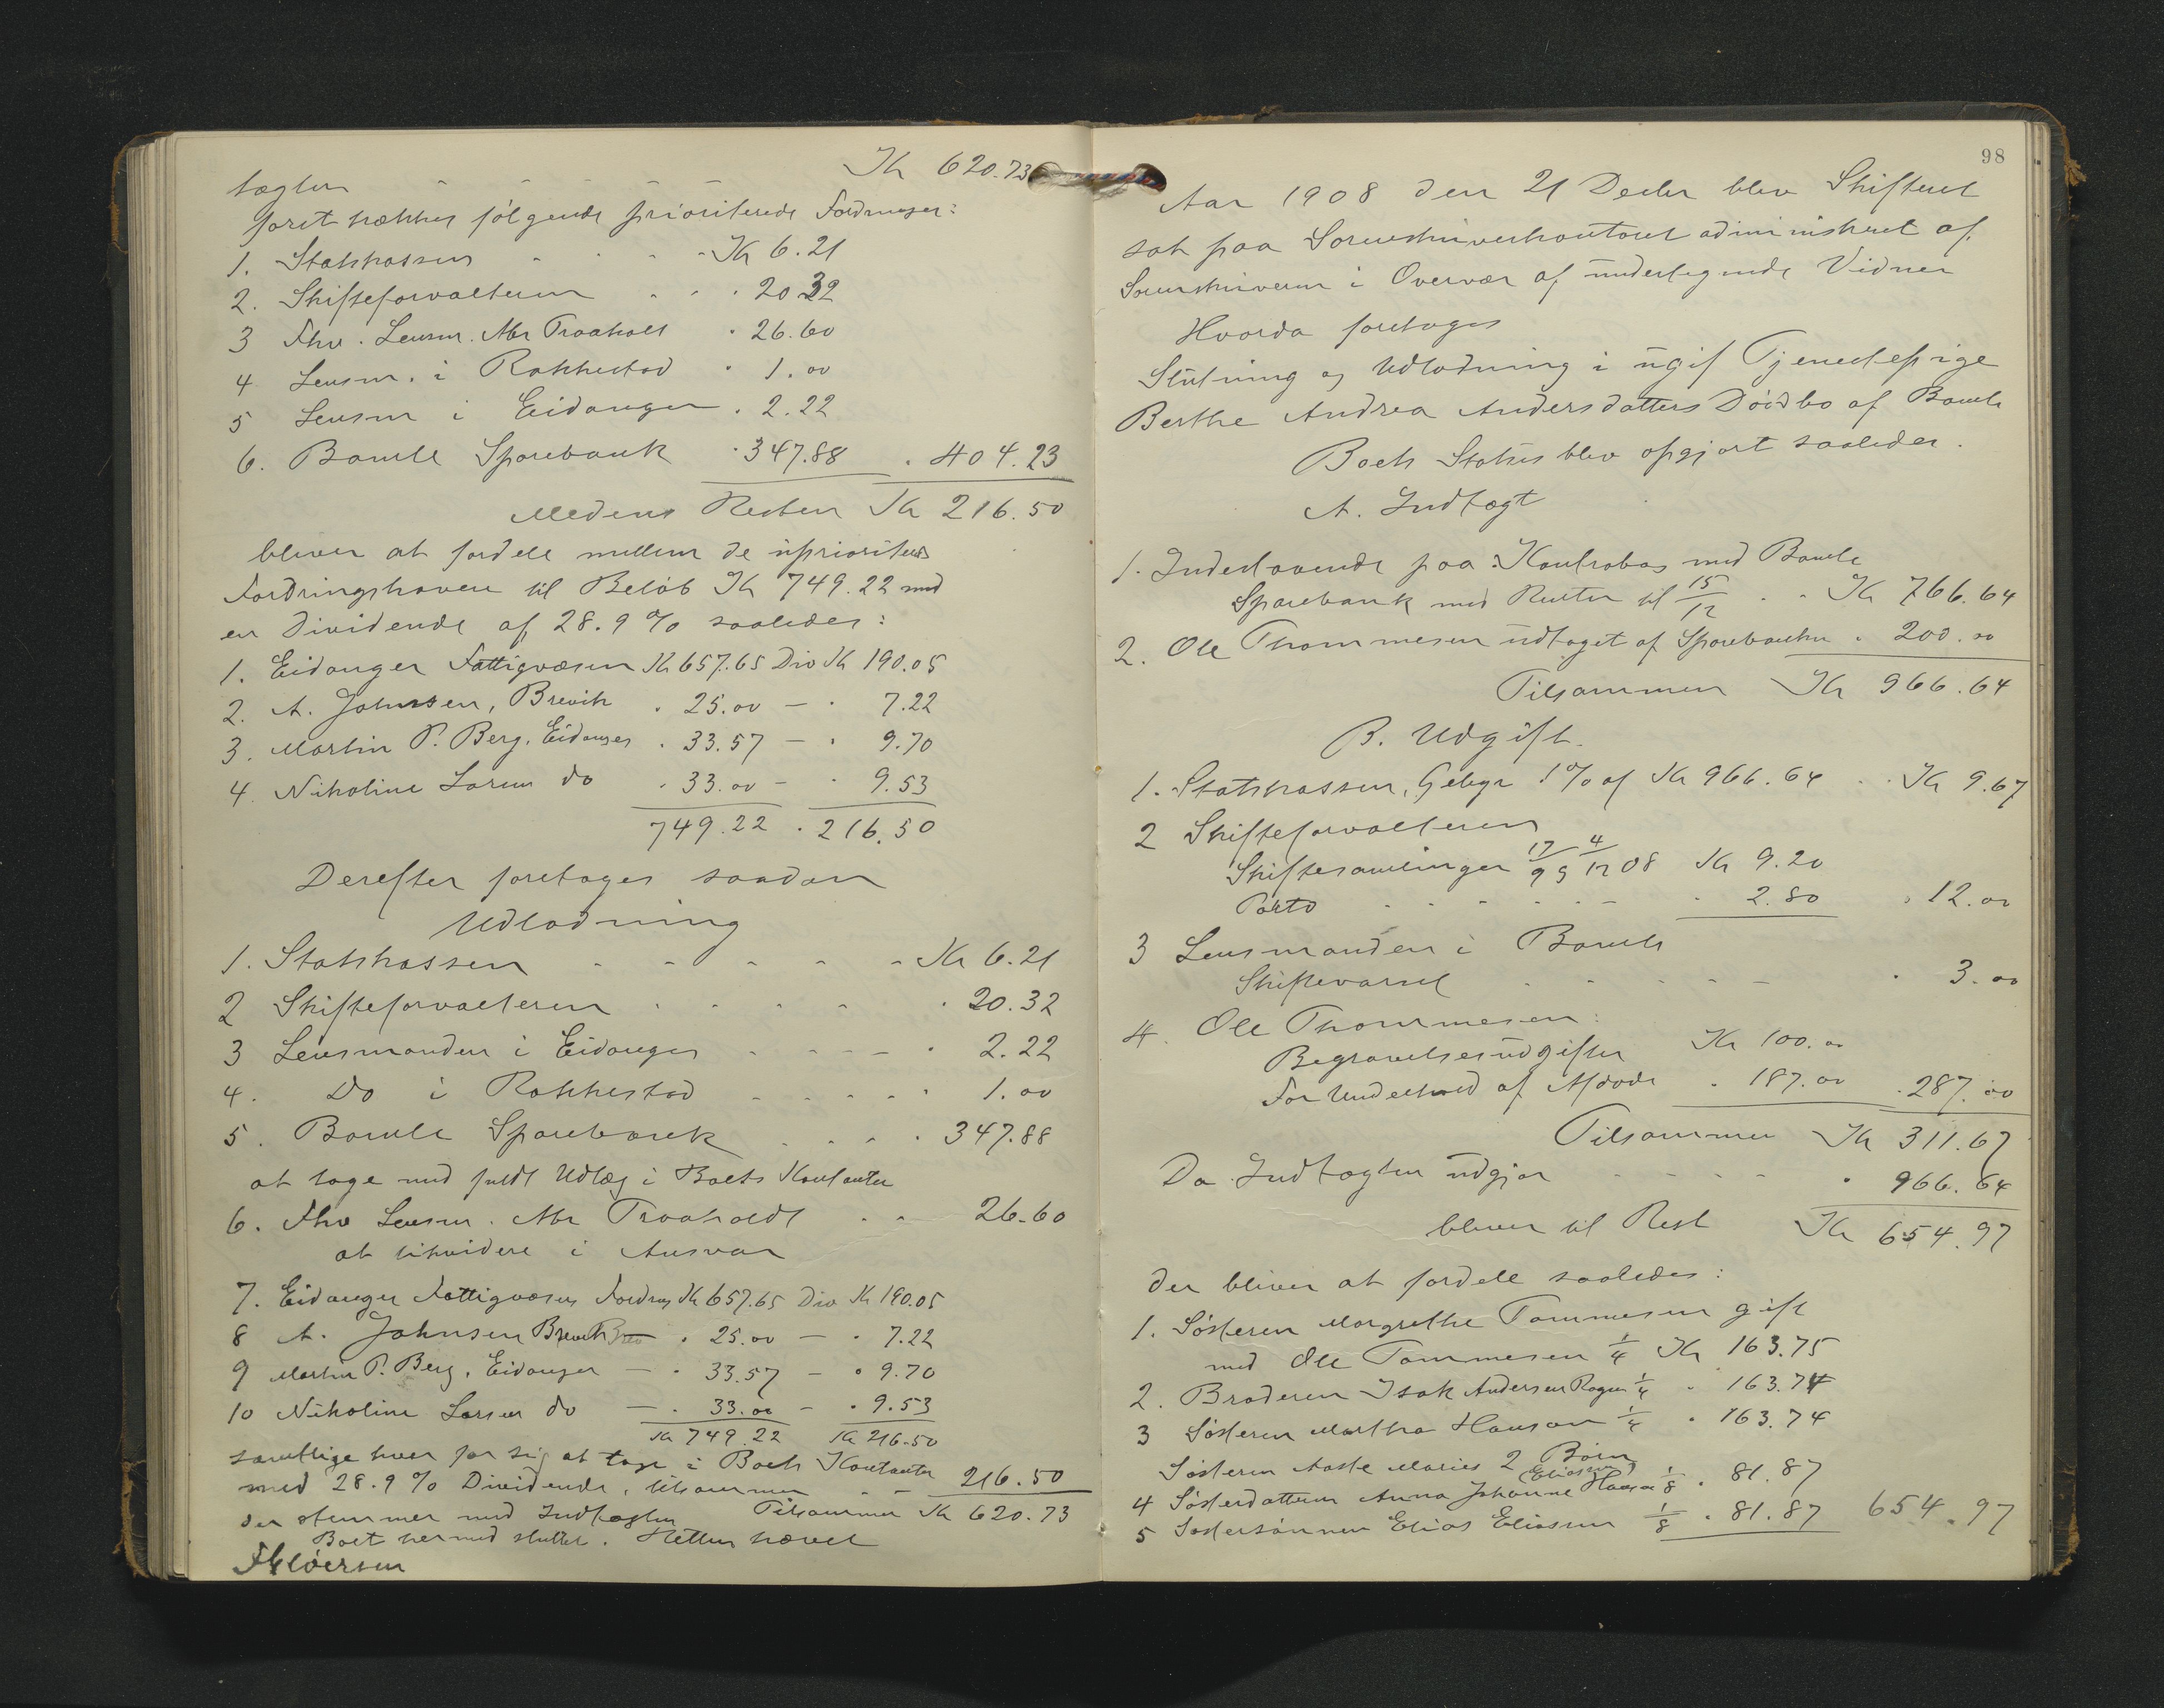 tægten - - - - - Kr 620.73
foret trækkes følgende prioriterede Fordringer:
1. Statskassen - - - - Kr 6.21
2. Skifteforvalteren . . . 20.32
3 Fhv. Lensm. Abr Traaholt . 26.60
4 Lensm. i Rakkestad . 1.00
5 Lensm i Eidanger . 2.22
6. Bamle Sparebank . 347.88 . 404.23
Medens Resten Kr 216.50
bliver at fordele mellem de uprioriterede
Fordringshavere til Beløb Kr 749.22 med
en Dividende af 28.9 % saaledes:
1. Eidanger Fattigvæsen Kr 657.65 Div Kr 190.05
2. A. Johnsen, Brevik . 25.00 - . 7.22
3. Martin P. Berg, Eidanger . 33.57 - . 9.70
4. Nikoline Larsen do . 33.00 - . 9.53
749.22 . 216.50
Derefter foretages saadan
Udlodning
1. Statskassen - - - - - Kr 6.21
2 Skifteforvalteren . . . . . 20.32
3 Lensmanden i Eidanger - - - - . 2.22
4. Do i Rakkestad - - - - . 1.00
5. Bamle Sparebank . . . . 347.88
at tage med fuldt Udlæg i Boets Kontanter
6. Fhv Lensm. Abr Traaholdt . - 26.60
at likvidere i Ansvar
7. Eidanger Fattigvæsen Fordring Kr 657.65 Div Kr 190.05
8 A. Johnsen Brevik . 25.00 - . 7.22
9 Martin P. Berg, Eidanger - . 33.57 - . 9.70
10 Nikoline Larsen do - . 33.00 - . 9.53
Kr 749.22 Kr 216.50
samtlige hver for sig at tage i Boets Kontanter
med 28.9 % Dividende, tilsammen - - 216.50
der stemmer med Indtægten Tilsammen Kr 620.73
Boet hermed sluttet. Retten hævet
98
Aar 1908 den 21 Decbr blev Skifteret
sat paa Sorenskriverkontoret administreret af
Sorenskriveren i Overvær af undertegnede Vidner
Hvorda foretages
Slutning og Udlodning i ugift Tjenestepige
Berthe Andrea Andersdatters Dødbo af Bamle
Boets Status blev opgjort saaledes.
A. Indtægt
1. Indestaaende paa Kontrabog med Bamle
Sparebank med Renter til 15/12 . . Kr 766.64
2. Ole Thommesen udtaget af Sparebanken . 200.00
Tilsammen Kr 966.64
B. Udgift.
1. Statskassen, Gebyr 1% af Kr 966.64 . . Kr 9.67
2 Skifteforvalteren
Skiftesamlinger 17/9 4/12 08 Kr 9.20
Porto - - - - - - . 2.80 . 12.00
3 Lensmanden i Bamle
Skiftevarsel . - - - - . 3.00
4. Ole Thommesen:
Begravelsesudgifter Kr 100.00
For Underhold af Afdøde . 187.00 . 287.00
Tilsammen Kr 311.67
Da Indtægten udgjør - - - - . 966.64
bliver til Rest Kr 654.97
der bliver at fordele saaledes:
1. Søsteren Margrethe Tommesen gift
med Ole Tommesen 1/4 Kr 163.75
2. Broderen Isak Andersen Rogn 1/4 . 163.74
3 Søsteren Martha Hansen 1/4 . 163.74
Søsteren Aaste Maries 2 Børn
(Eliassen)
4 Søsterdatteren Anna Johanne Hansen 1/8 . 81.87
5 Søstersønnen Elias Eliassen 1/8 . 81.87 654.97